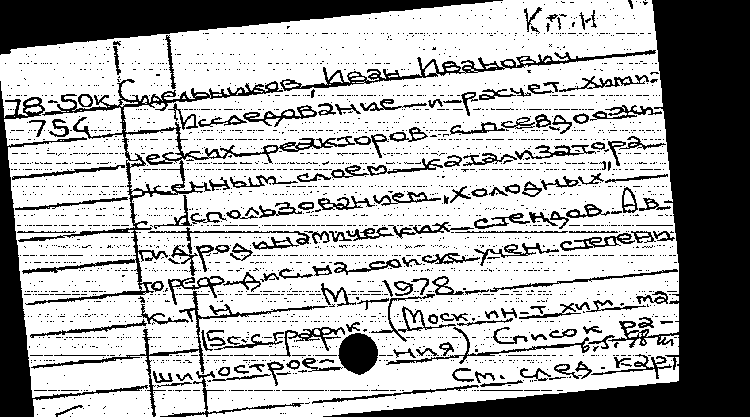 К.т.н
78-50к Сидельников, Иван Иванович
754 Исследование и расчет хими-
ческих реакторов с псевдоожи-
женным слоем катализатора
с использованием „холодных"
гидродинамических стендов. Ав-
тореф. дис. на соиск. учен. степени
к.т.н. М., 1978.
15 с. с график. (Моск. ин-т хим. ма-
шинострое- ния). Список ра-
См. след. кар.